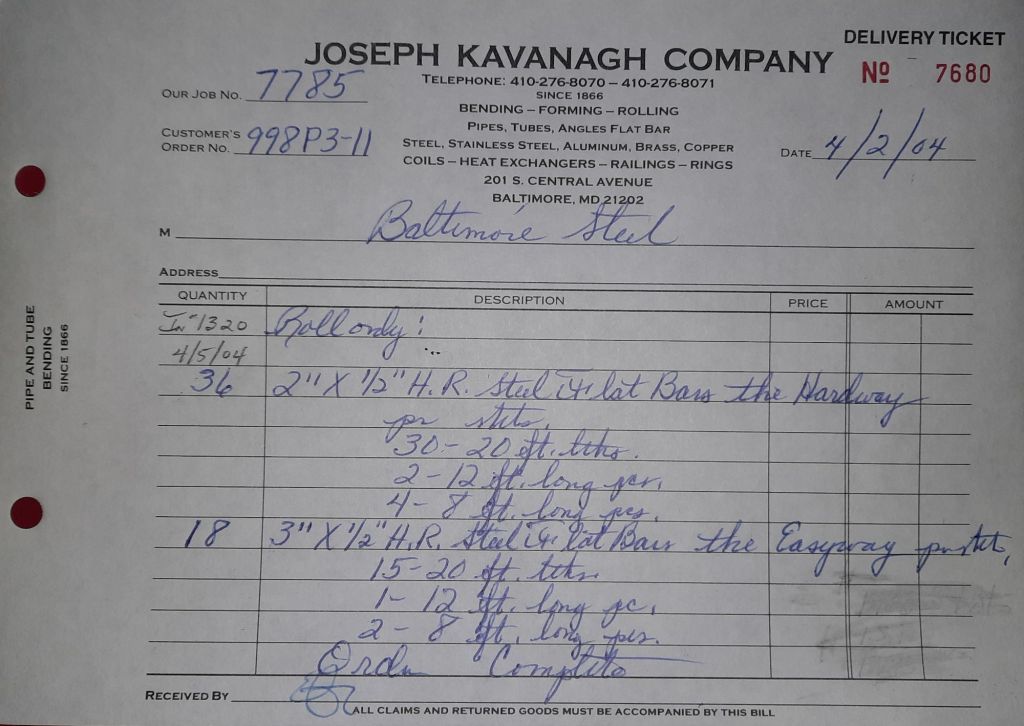 DELIVERY TICKET
JOSEPH KAVANAGH COMPANY
Nº 7680
TELEPHONE: 410-276-8070 – 410-276-8071
SINCE 1866
OUR JOB NO. 7785
BENDING – FORMING – ROLLING
PIPES, TUBES, ANGLES FLAT BAR
CUSTOMER'S
ORDER NO. 998P3-11
STEEL, STAINLESS STEEL, ALUMINUM, BRASS, COPPER
DATE 4/2/04
COILS – HEAT EXCHANGERS – RAILINGS – RINGS
201 S. CENTRAL AVENUE
BALTIMORE, MD 21202
M Baltimore Steel
ADDRESS
QUANTITY DESCRIPTION PRICE AMOUNT
In# 1320 Roll only:
4/5/04
36 2" X 1/2" H.R. Steel Flat Bars the Hardway
pr skts.
30 - 20 ft. lths.
2 - 12 ft. long pcs.
4 - 8 ft. long pcs.
18 3" X 1/2" H.R. Steel Flat Bars the Easyway pr skt,
15 - 20 ft. lths.
1 - 12 ft. long pc.
2 - 8 ft. long pcs.
Order Complete
RECEIVED BY
ALL CLAIMS AND RETURNED GOODS MUST BE ACCOMPANIED BY THIS BILL
PIPE AND TUBE
BENDING
SINCE 1866